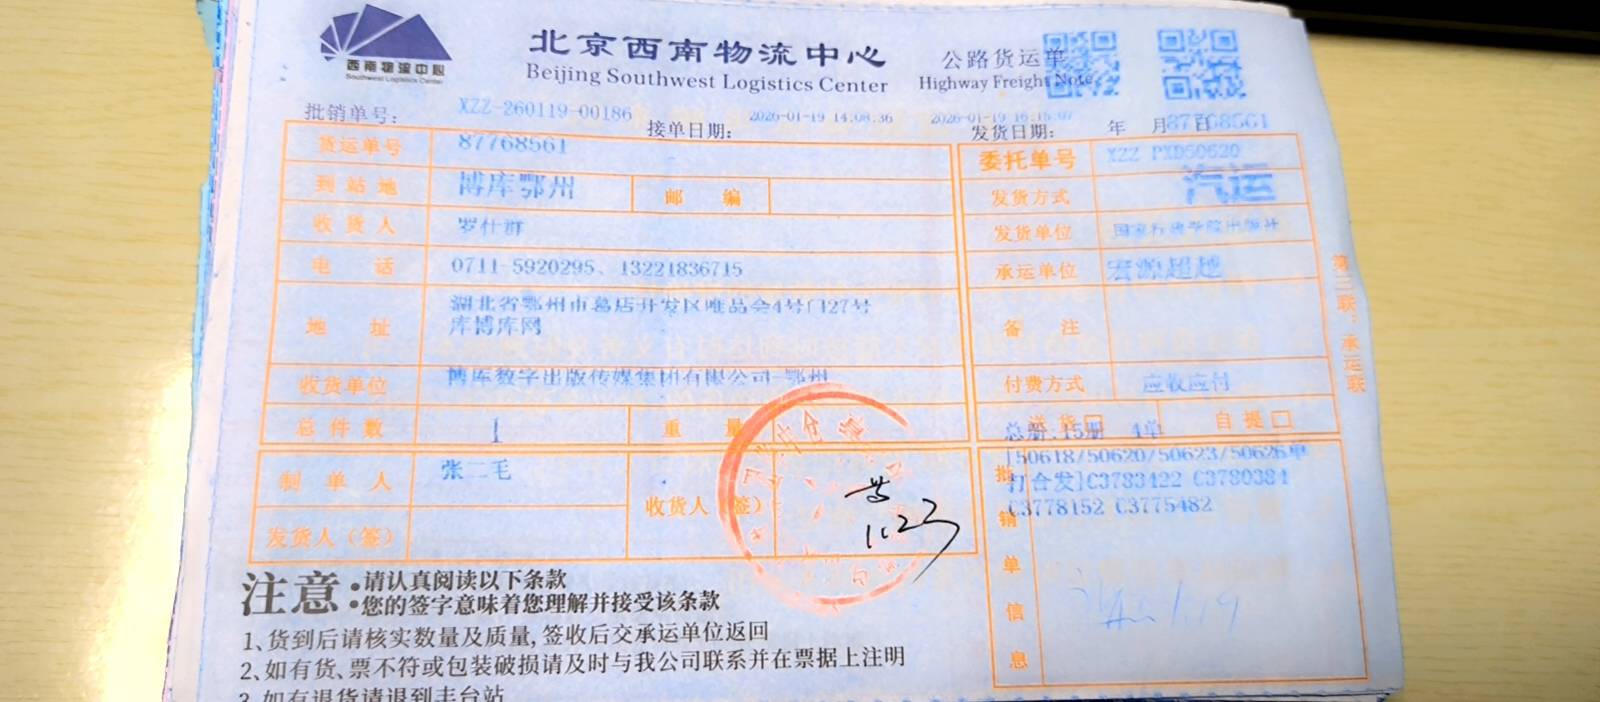 西南物流中心
Southwest Logistics Center
北京西南物流中心
Beijing Southwest Logistics Center
公路货运单
Highway Freight Note
批销单号: XZZ-260119-00186
接单日期: 2026-01-19 14:08:36
发货日期: 2026-01-19 16:15:07 年 月 日
87768561
货运单号 87768561
委托单号 XZZ PXD50620
到站地 博库鄂州 邮编
发货方式 汽运
收货人 罗仕群
发货单位 国家行政学院出版社
电话 0711-5920295、13221836715
承运单位 宏源超越
地址 湖北省鄂州市葛店开发区唯品会4号门27号
库博库网
备注
收货单位 博库数字出版传媒集团有限公司-鄂州
付费方式 应收应付
总件数 1 重量
送货□ 自提□
总册:15册 4单
制单人 张二毛
收货人(签)
1.23
发货人(签)
批销单信息
[50618/50620/50623/50626单
打合发]C3783422 C3780384
C3778152 C3775482
1/19
第三联:承运联
注意:请认真阅读以下条款
您的签字意味着您理解并接受该条款
1、货到后请核实数量及质量,签收后交承运单位返回
2、如有货、票不符或包装破损请及时与我公司联系并在票据上注明
3、如有退货请退到丰台站